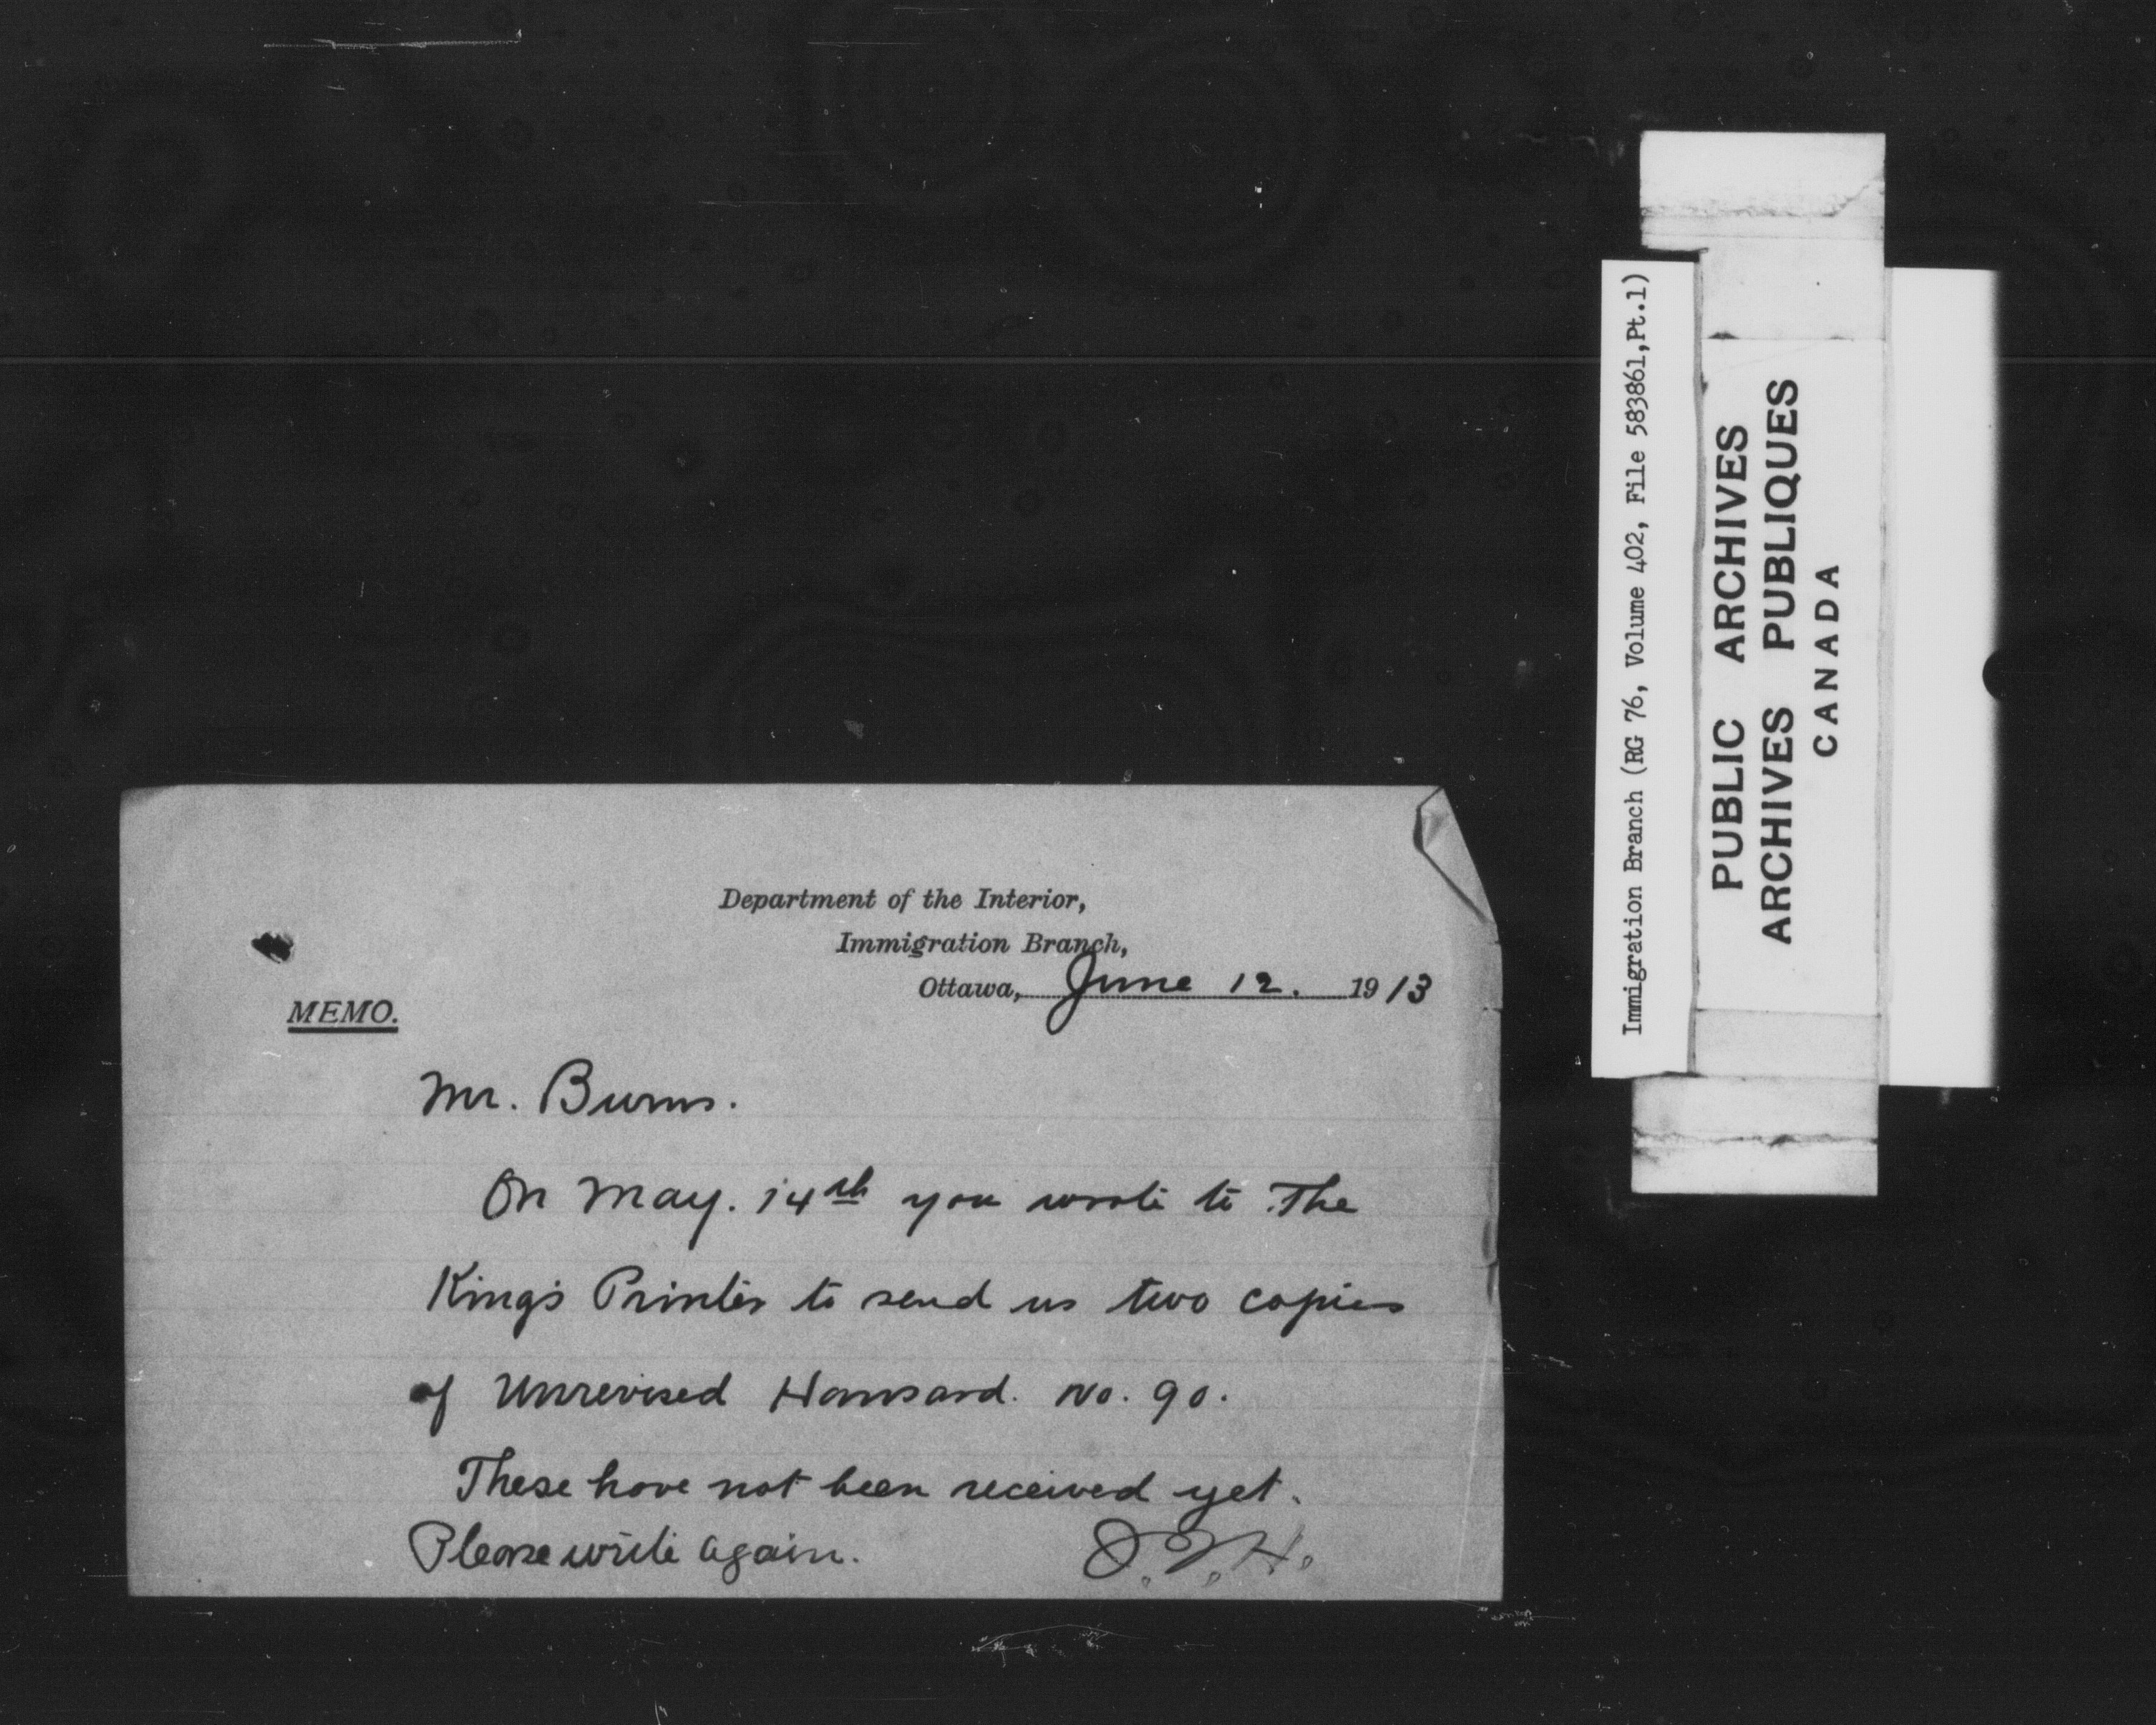 Department of the Interior,
Immigration Branch,
Ottawa, June 12. 1913
MEMO.
Mr. Burns.
On May. 14th you wrote to The
King's Printer to send us two copies
of Unrevised Hansard. No. 90.
These have not been received yet.
Please write again.
Immigration Branch (RG 76, Volume 402, File 583861,Pt.1)
PUBLIC ARCHIVES
ARCHIVES PUBLIQUES
CANADA